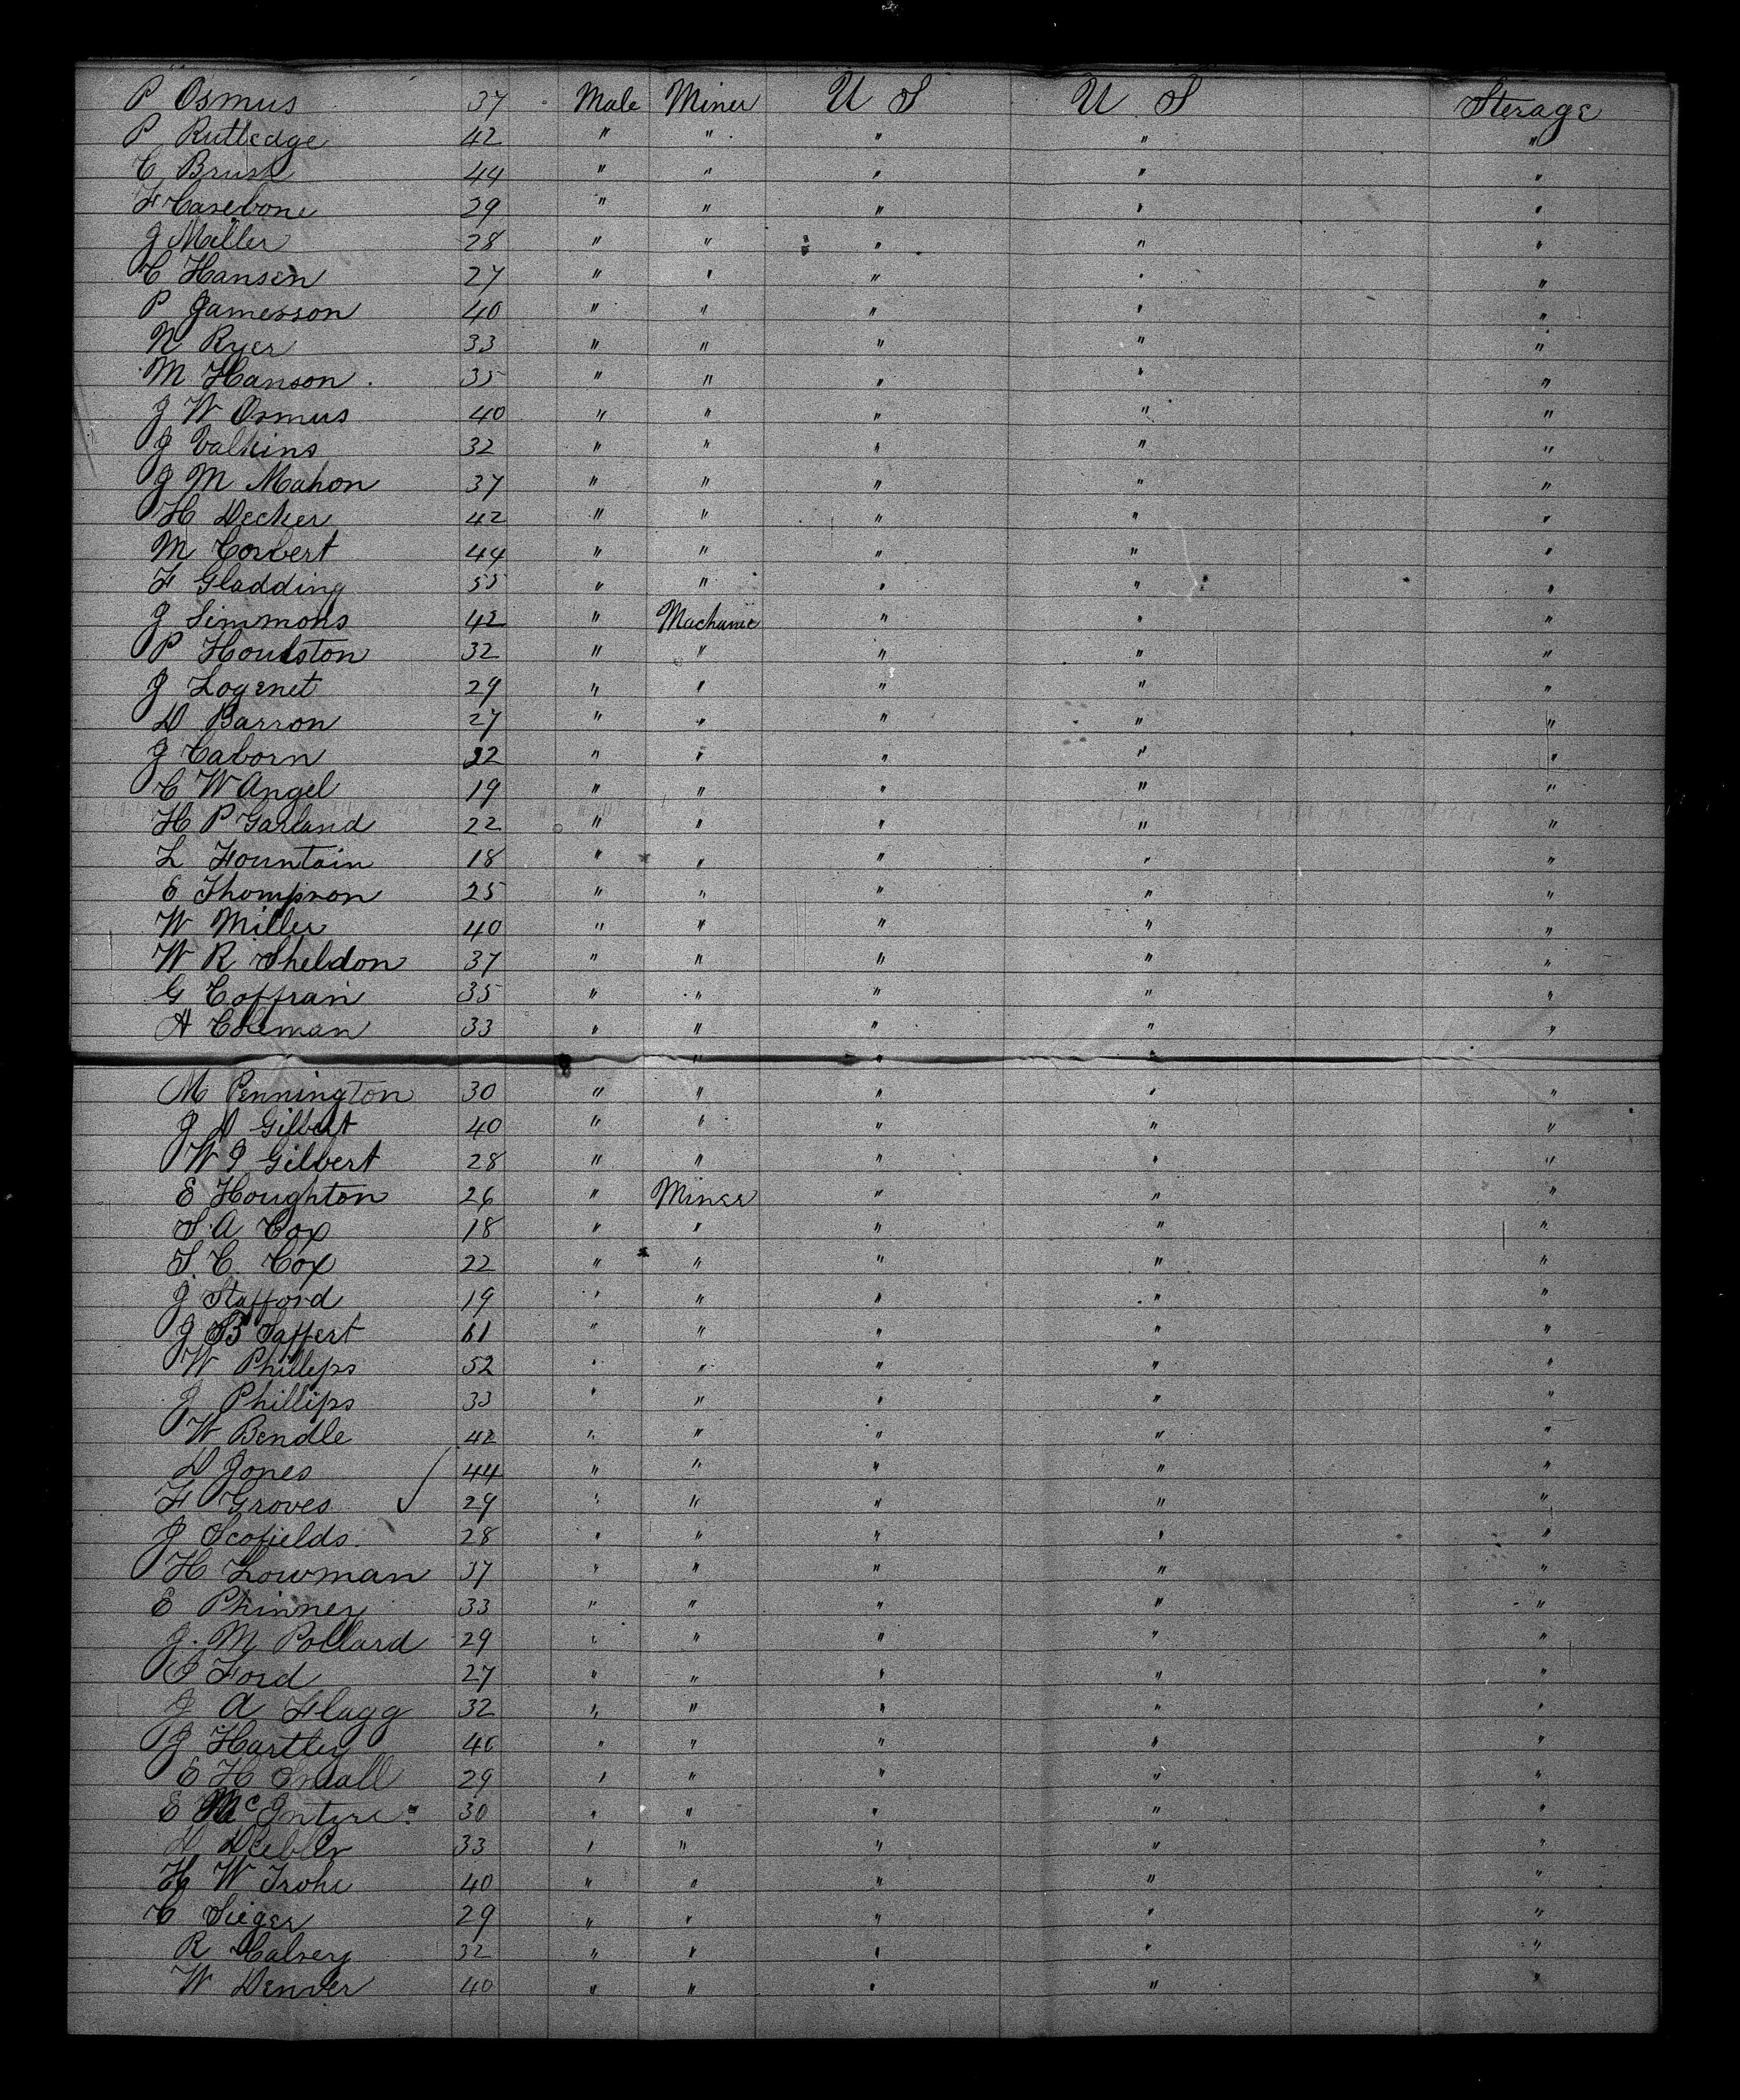 P Osmus 37 Male Miner U S U S Sterage
P Rutledge 42 " " " " "
C Brush 44 " " " " "
F Casebone 29 " " " " "
J Miller 28 " " " " "
C Hansen 27 " " " " "
P Jamesson 40 " " " " "
N Ryer 33 " " " " "
M Hanson. 35 " " " " "
J W Osmus 40 " " " " "
J Valkins 32 " " " " "
J M Mahon 37 " " " " "
H Decker 42 " " " " "
M Corbert 44 " " " " "
F Gladding 55 " " " " "
J Simmons 42 " Machanic " " "
P Houlston 32 " " " " "
J Logenet 29 " " " " "
D Barron 27 " " " " "
J Caborn 22 " " " " "
C W Angel 19 " " " " "
H P Garland 22 " " " " "
L Fountain 18 " " " " "
E Thompson 25 " " " " "
W Miller 40 " " " " "
W R Sheldon 37 " " " " "
G Coffran 35 " " " " "
A Coleman 33 " " " " "
" " "
M Pennington 30 " " " " "
J D Gilbert 40 " " " " "
W J Gilbert 28 " " " " "
E Houghton 26 " Miner " " "
S. A Cox 18 " " " " "
S. C. Cox 22 " " " " "
J Stafford 19 " " " " "
J B Saffert 61 " " " " "
W Phillips 52 " " " " "
J Phillips 33 " " " " "
W Bendle 42 " " " " "
D Jones 44 " " " " "
F Groves 29 " " " " "
J Scofields. 28 " " " " "
H Lowman 37 " " " " "
E Phinney 33 " " " " "
J. M Pollard 29 " " " " "
J Ford 27 " " " " "
J A Flagg 32 " " " " "
J Hartley 46 " " " " "
E H Small 29 " " " " "
E McIntyre. 30 " " " " "
33 " " " " "
H W Trohe 40 " " " " "
C Sieger 29 " " " " "
R Calvery 32 " " " " "
W Denver 40 " " " " "